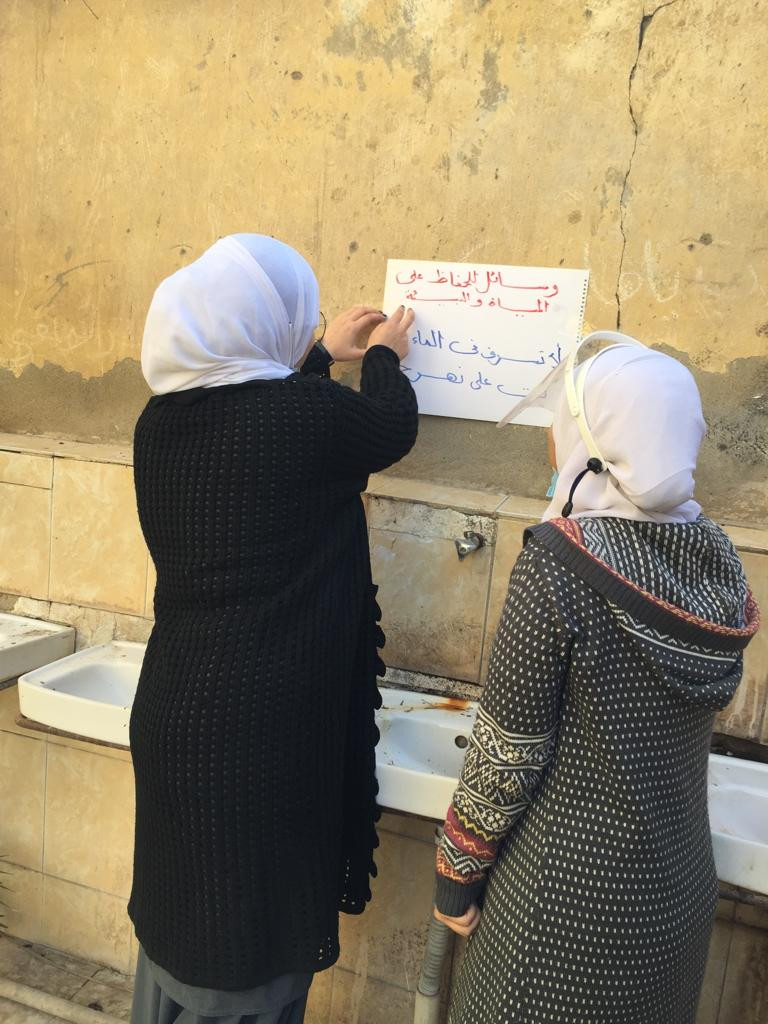 وسائل للحفاظ على
المياة والبيئة
لا تسرف فى الماء
على نهر